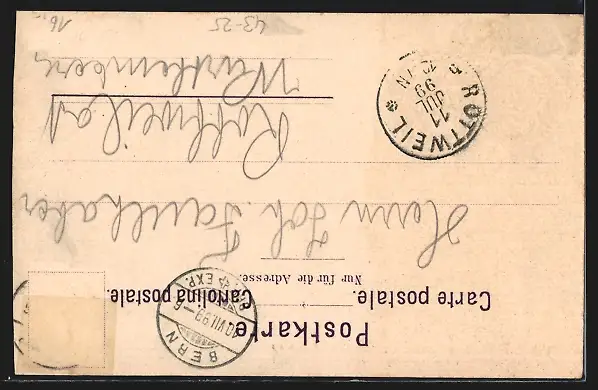 Postkarte
Carte postale. Cartolina postale.
Nur für die Adresse.
BERN
10.VII.99–6
EXP.
Herrn Joh. Faulhaber
Rottweil
Württemberg
ROTTWEIL
11
JUL
99
N
43-25
16